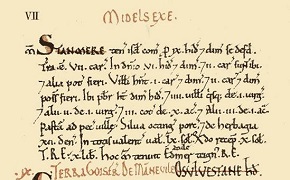 VII MIDELSEXE.
STANMERE ten isd com. p ix. hid 7 dim se defd.
Tra .e. VII. car. In dnio vi. hid 7 dim. 7 ii. car sunt ibi.
7 alia pot fieri. Villi hnt .i. car 7 dim. 7 ii. car 7 dim
poss fieri. Ibi pbr ht dim hid. 7 iiii. uilli qsq; de .i. uirg.
7 alii .ii. de .i. uirg. 7 iii. cot de .x. ac. 7 alii .iii. de .i. ac.
Pasta ad pec uille. Silua octing porc. 7 de herbagio
xii. den. In total ualent ual. lx. sol. Qdo recep .x. sol.
T.R.E. x. lib. Hoc tenuit Edmer teign R.E.
TERRA GOISFR DE MANEVILE OSVLVESTANE HD